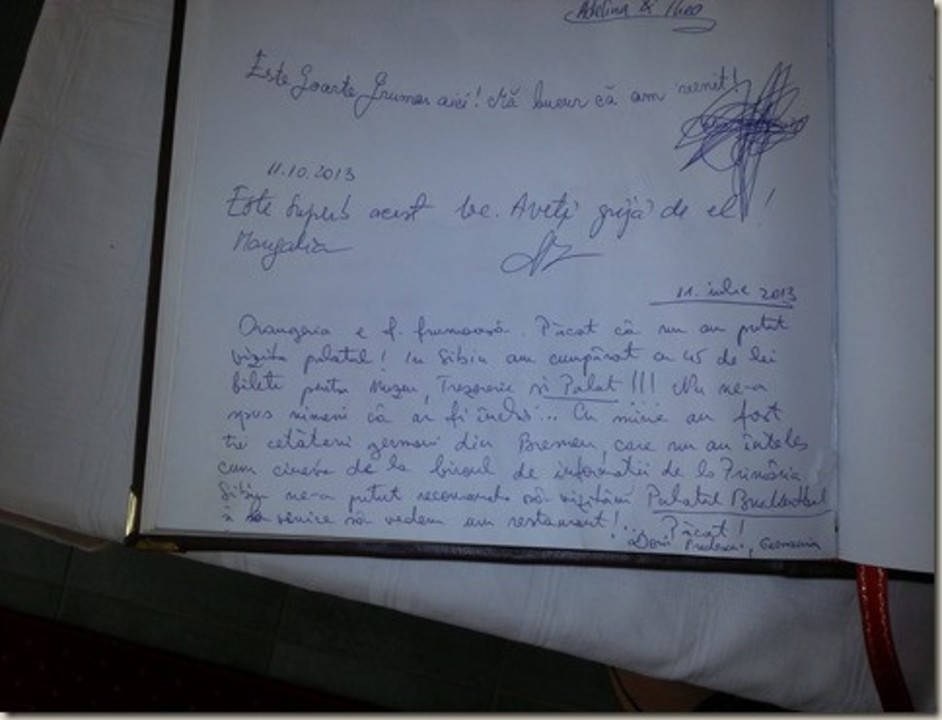 Adelina & Theo
Este foarte frumos aici! Mă bucur că am venit!
11.10.2013
Este superb acest loc. Aveți grijă de el!
Mangalia
11. iulie 2013
Orangeria e f. frumoasă. Păcat că nu am putut
vizita palatul! In Sibiu am cumpărat cu 45 de lei
bilete pentru Muzeu, Trezorerie și Palat!!! Nu ne-a
spus nimeni că ar fi închis... Cu mine au fost
trei cetățeni germani din Bremen, care nu au înteles
cum cineva de la biroul de informatii de la Primăria
Sibiu ne-a putut recomanda să vizităm Palatul Brukenthal
să vedem un restaurant!.. Păcat!
Germania